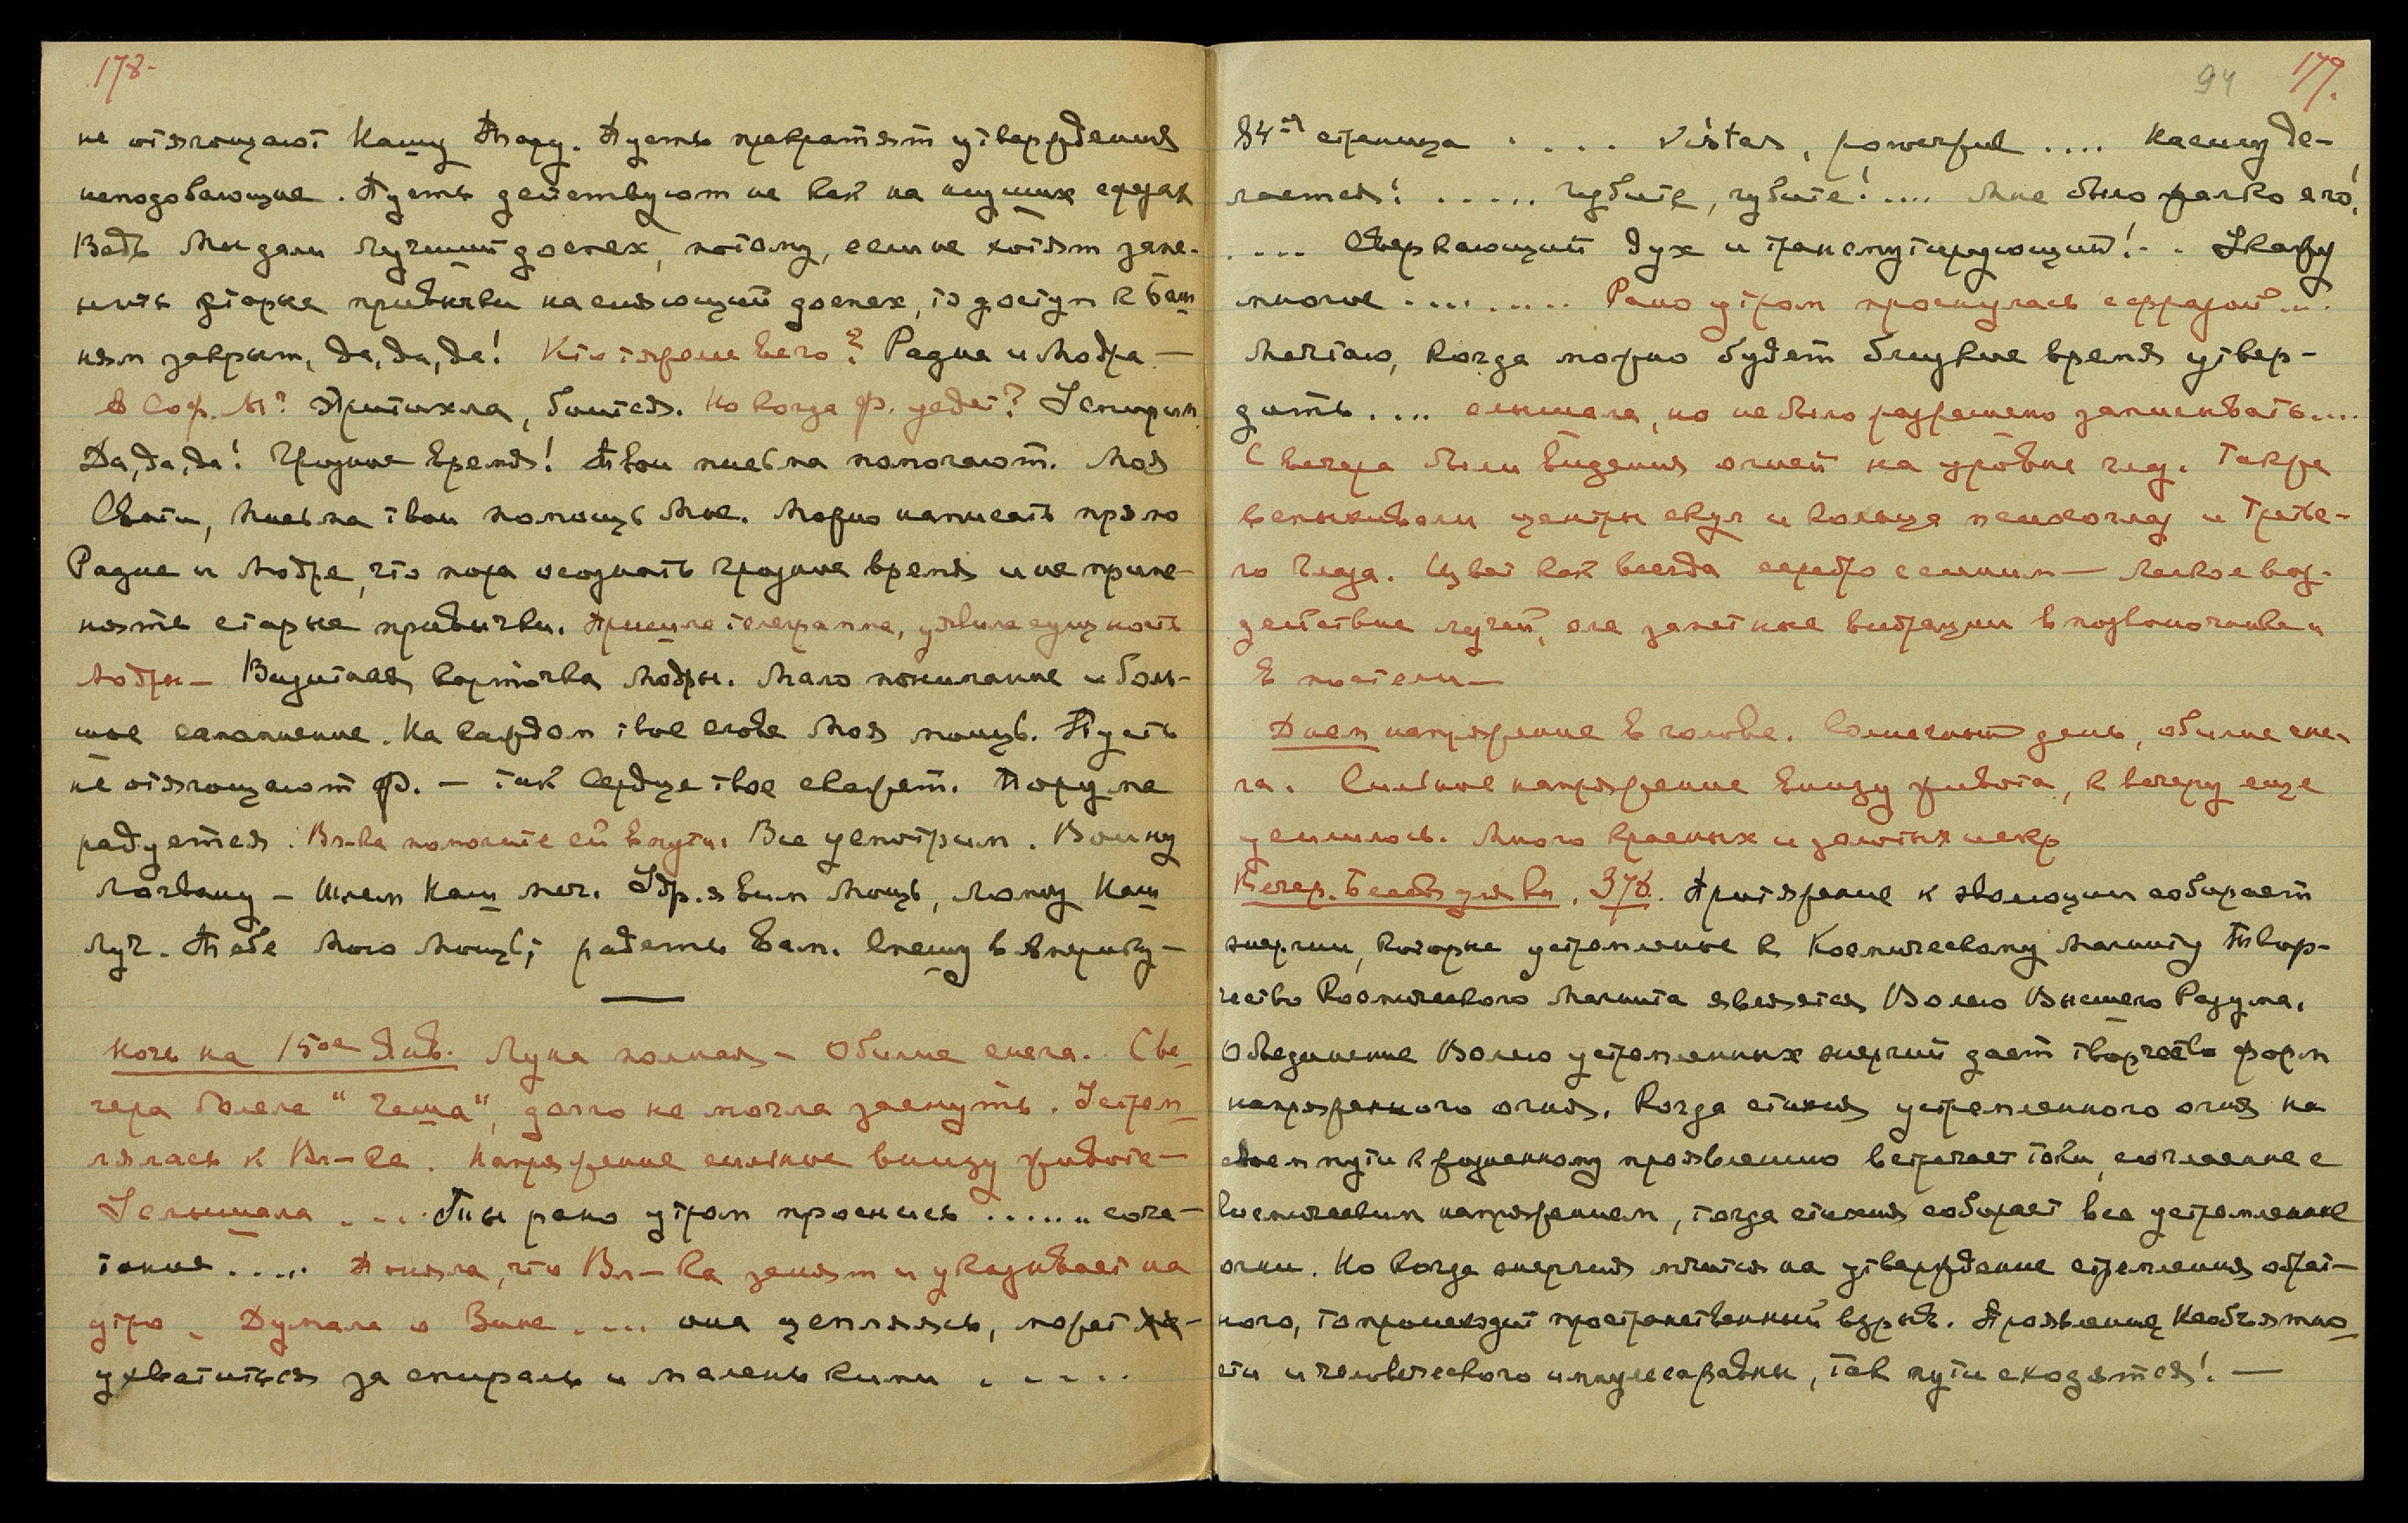 178-
не отягощают Нашу Тару. Пусть прекратят утверждения
неподобающие. Пусть действуют не как на низших сферах
Ведь Мы дали лучший доспех, потому, если не хотят заме-
нить старые привычки на сияющий доспех, то доступ к Баш
ням закрыт, да, да, да! Кто тяжеле всего? Радна и Модра —
А Соф. М? Притихла, боится. Но когда Ф. уедет? Усмирим
Да, да, да! Грозное время! Твои письма помогают. Моя
Свати, письма твои помощь Мне. Можно написать прямо
Радне и Модре, что пора осознать грозное время и не приме-
нять старые привычки. Пришла телеграмма, уявила сущность
Модры — Визитная карточка Модры. Мало понимание и боль-
шое самомнение. На каждом твое слове Моя мощь. Пусть
не отягощают Ф. — так Сердце твое скажет. Порума
радуется. Вл-ка помогите ей в пути. Все усмотрим. Воину
Логвану — Шлем Наш меч. Здр. явим Мощь, Люмоу Наш
Луч. Тебе Мою Мощь; радеть вам. Спешу в Америку —
Ночь на 15ое Янв. Луна полная — Обилие снега. С ве
чера болела "Чаша", долго не могла заснуть. Устрем
лялась к Вл-ке. Напряжение сильное внизу живота —
Услышала .... Ты рано утром проснись ...... соче-
тание ..... Поняла, что Вл-ка занят и указывает на
утро. Думала о Зине .... она цепляясь, может
ухватиться за спираль и маленькими .....
94 179.
84ая страница .... Vistas, powerful .... Насилу де-
лается! ..... Губите, губите! .... Мне было жалко его!
.... Сверкающий дух и трансмутирующий! .. Скажу
многое ......... Рано утром проснулась с фразой ...
Мечтаю, когда можно будет близкое время утвер-
дить .... слышала, но не было разрешено записывать....
С вечера были видения огней на уровне глаз. Также
вспыхивали центры скул и кольца около глаз и Третье-
го Глаза. Цвет как всегда серебро с синим — легкое воз-
действие лучей, еле заметные вибрации в позвоночнике и
в постели —
Днем напряжение в голове. Солнечный день, обилие сне-
га. Сильное напряжение внизу живота, к вечеру еще
усилилось. Много красных и золотых искр
Вечер. Беседа для Кн. 378. Притяжение к эволюции собирает
энергии, которые устремленные к Космическому Магниту Твор-
чество Космического Магнита является Волею Высшего Разума.
Объединение Волею устремленных энергий дает творчество форм
напряженного огня. Когда стихия устремленного огня на
своем пути к жизненному проявлению встречает токи, согласные с
космическим напряжением, тогда стихия собирает все устремленные
огни. Но когда энергия мчится на утверждение стремления обрат-
ного, то происходит пространственный взрыв. Проявление Необъятно
сти и человеческого импульса равны, так пути сходятся! —